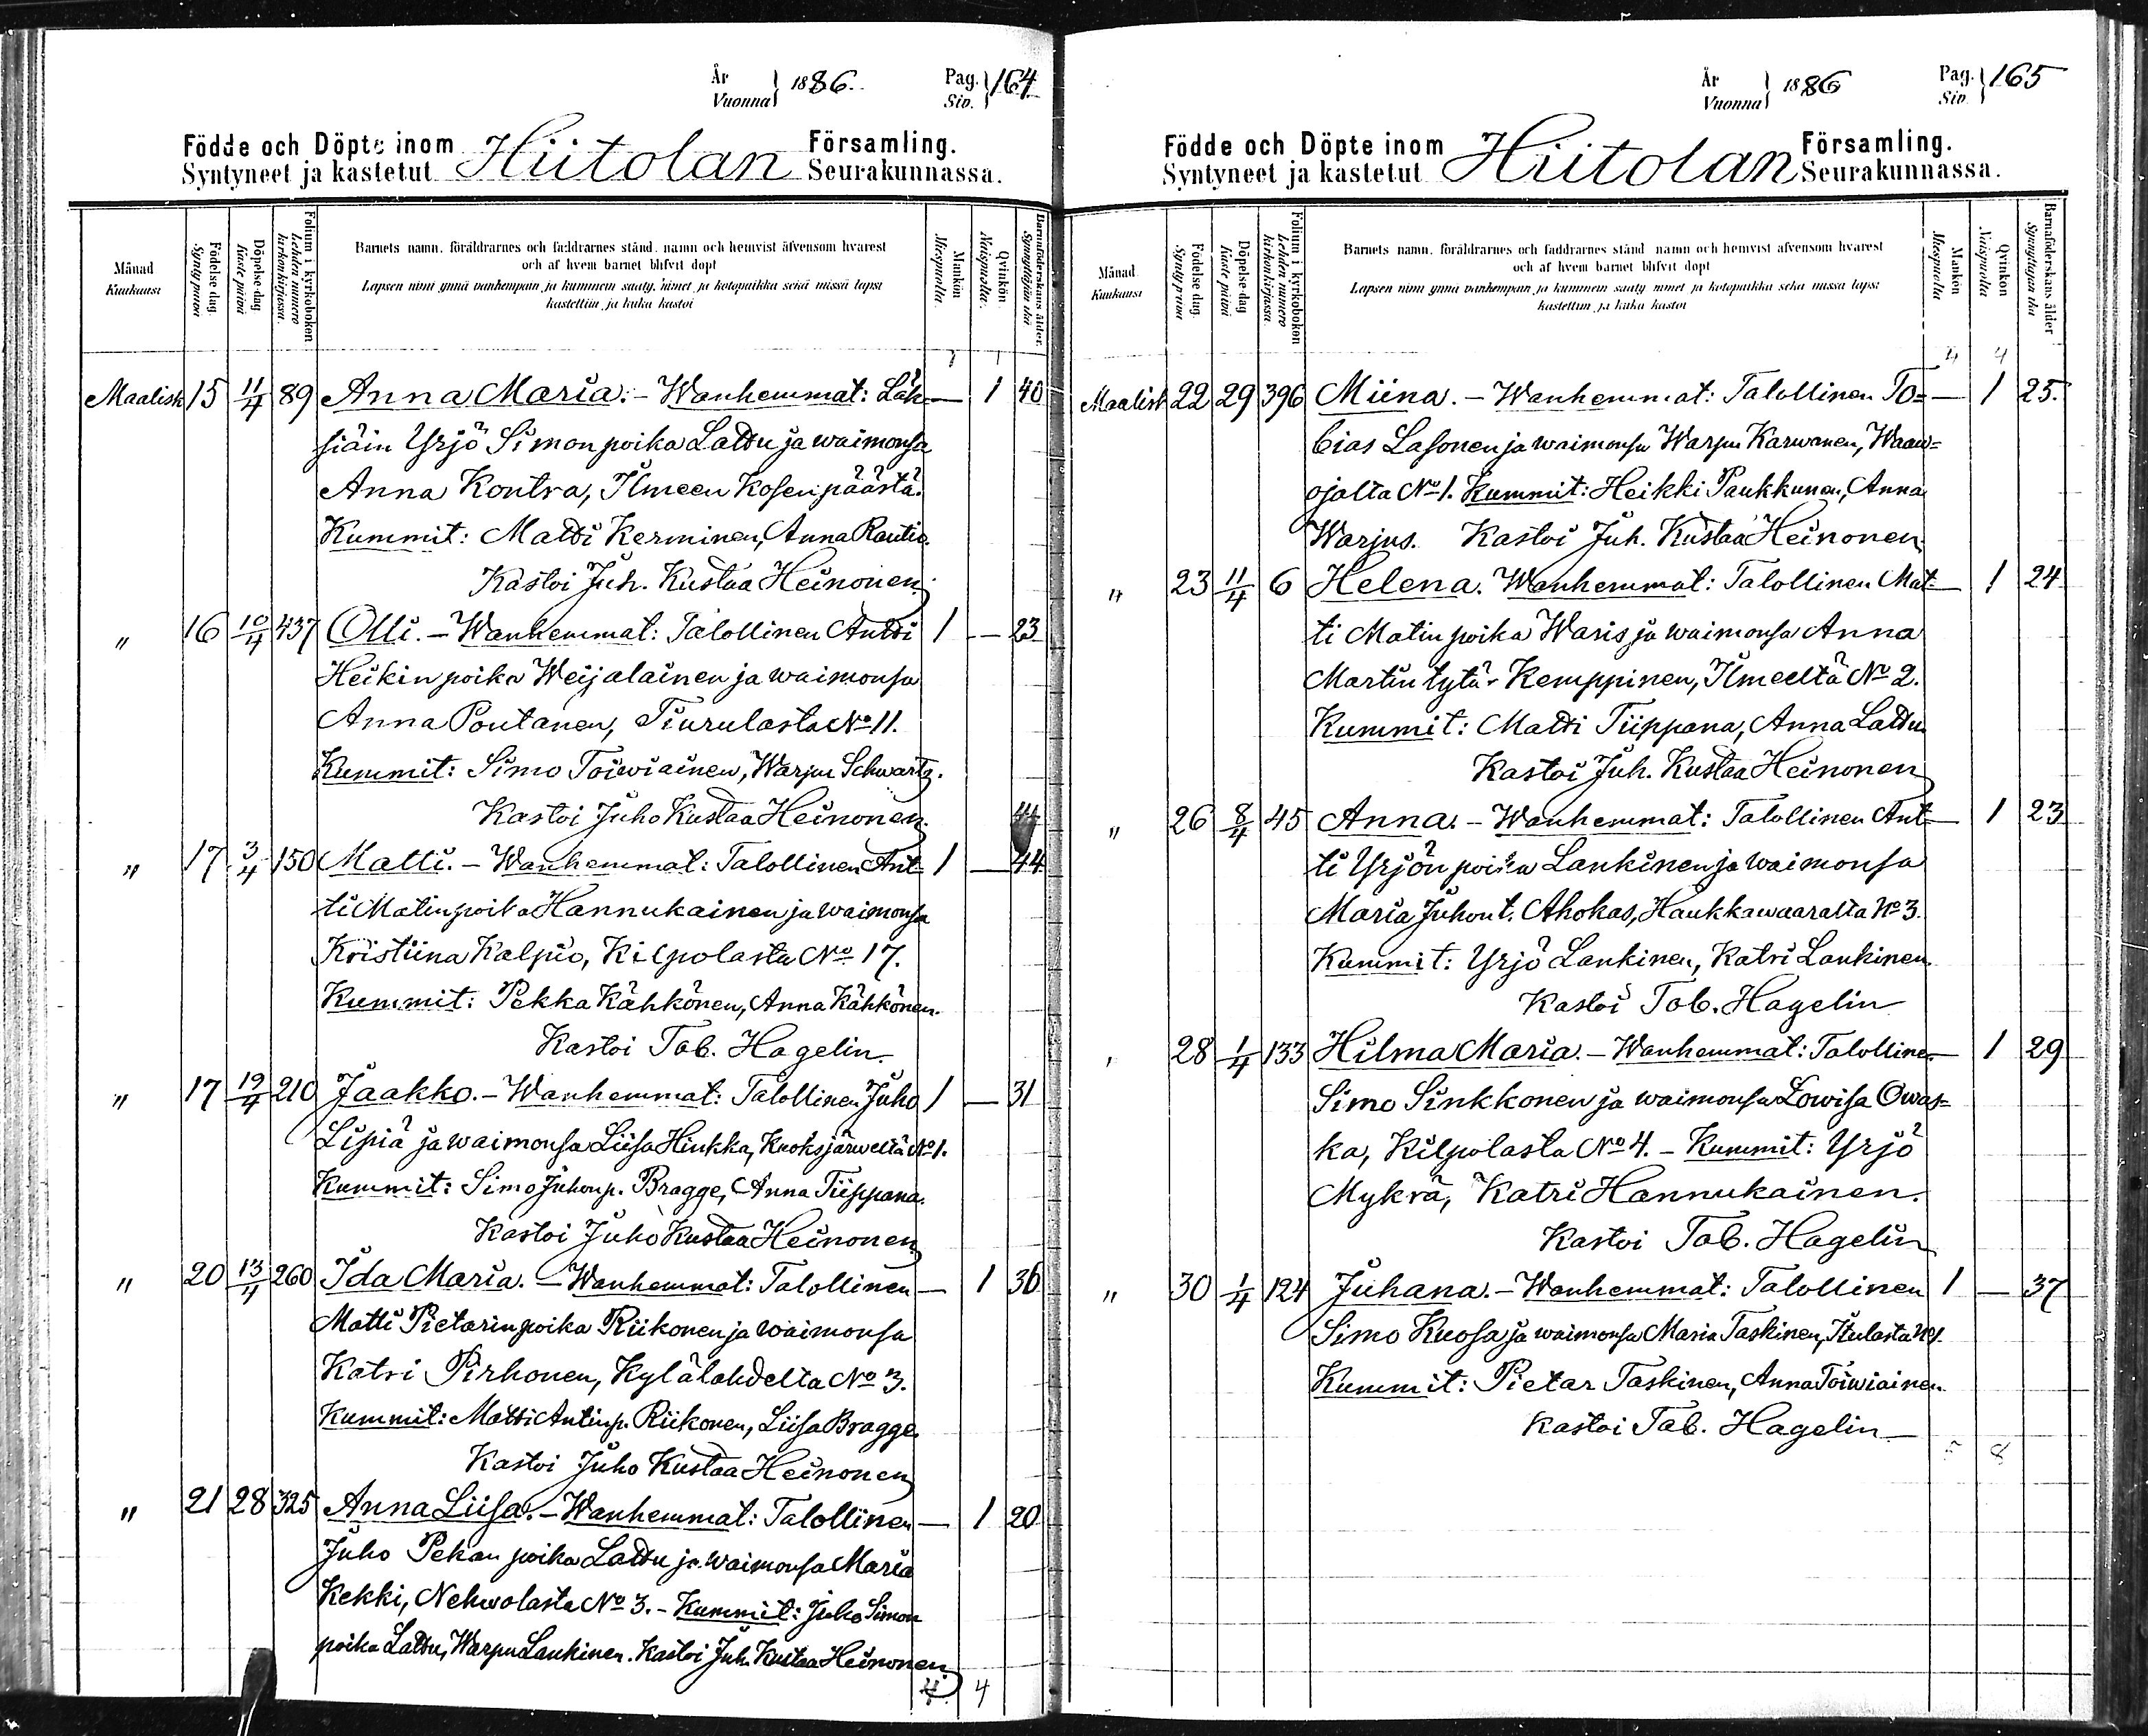 År
Vuonna } 1886.
Pag.
Siv. } 164
Födde och Döpte inom Hiitolan Församling.
Syntyneet ja kastetut Seurakunnassa.
Månad
Kuukausi
Födelse dag.
Syntypäivä
Döpelse dag
Kaste päivä
Folium i kyrkoboken
Lehden numero
kirkonkirjassa.
Barnets namn, föräldrarnes och faddrarnes stånd, namn och hemvist äfvensom hvarest
och af hvem barnet blifvit döpt
Lapsen nimi ynnä vanhempain ja kummein sääty, nimet ja kotopaikka sekä missä lapsi
kastettiin ja kuka kastoi
Mankön
Miespuolta.
Qvinkön
Naispuolta.
Barnföderskans ålder.
Synnyttäjän ikä
Maalisk 15 11/4 89 Anna Maria. - Wanhemmat: Läk- — 1 40
siäin Yrjö Simon poika Lattu ja waimonsa
Anna Kontra, Ilmeen Kosen päästä.
Kummit: Matti Kerminen, Anna Rautio.
Kastoi Juh. Kustaa Heinonen.
" 16 10/4 437 Olli. - Wanhemmat: Talollinen Antti 1 — 23
Heikin poika Weijalainen ja waimonsa
Anna Poutanen, Tiurulasta No 11.
Kummit: Simo Toiwiainen, Warpu Schwartz.
Kastoi Juho Kustaa Heinonen. 44
" 17 3/4 150 Matti. - Wanhemmat: Talollinen Ant- 1 — 44
ti Matin poika Hannukainen ja waimonsa
Kristiina Kalpio, Kilpolasta No 17.
Kummit: Pekka Kähkönen, Anna Kähkönen.
Kastoi Tob. Hagelin.
" 17 19/4 210 Jaakko. - Wanhemmat: Talollinen Juho 1 — 31
Lipiä ja waimonsa Liisa Hinkka, Kuoksjärweltä No 1.
Kummit: Simo Juhonp. Bragge, Anna Tiippana.
Kastoi Juho Kustaa Heinonen
" 20 13/4 260 Ida Maria. - Wanhemmat: Talollinen — 1 36
Matti Pietarin poika Riikonen ja waimonsa
Katri Pirhonen, Kylälahdelta No 3.
Kummit: Matti Antinp. Riikonen, Liisa Bragge.
Kastoi Juho Kustaa Heinonen
" 21 28 325 Anna Liisa. - Wanhemmat: Talollinen — 1 20
Juho Pekan poika Lattu ja waimonsa Maria
Kekki, Nehwolasta No 3. - Kummit: Juho Simon
poika Lattu, Warpu Lankinen. Kastoi Juh. Kustaa Heinonen.
4 4
År
Vuonna } 1886
Pag.
Siv. } 165
Födde och Döpte inom Hiitolan Församling.
Syntyneet ja kastetut Seurakunnassa.
Månad
Kuukausi
Födelse dag.
Syntypäivä
Döpelse dag
Kaste päivä
Folium i kyrkoboken
Lehden numero
kirkonkirjassa.
Barnets namn, föräldrarnes och faddrarnes stånd, namn och hemvist äfvensom hvarest
och af hvem barnet blifvit döpt
Lapsen nimi ynnä vanhempain ja kummein sääty, nimet ja kotopaikka sekä missä lapsi
kastettiin ja kuka kastoi
Mankön
Miespuolta
Qvinkön
Naispuolta
Barnaföderskans ålder
Synnyttäjän ikä
4 4
Maalisk 22 29 396 Miina. - Wanhemmat: Talollinen To= — 1 25.
bias Lasonen ja waimonsa Warpu Karwanen, Waaw=
ojalta No 1. Kummit: Heikki Paukkunen, Anna
Warjus. Kastoi Juh. Kustaa Heinonen
" 23 11/4 6 Helena. Wanhemmat: Talollinen Mat- — 1 24
ti Matin poika Waris ja waimonsa Anna
Martin tytär Kemppinen, Ilmeeltä No 2.
Kummit: Matti Tiippana, Anna Lattu
Kastoi Juh. Kustaa Heinonen
" 26 8/4 45 Anna. - Wanhemmat: Talollinen Ant- — 1 23
ti Yrjön poika Lankinen ja waimonsa
Maria Juhont. Ahokas, Haukkawaaralta No 3.
Kummit: Yrjö Lankinen, Katri Lankinen.
Kastoi Tob. Hagelin
" 28 1/4 133 Hilma Maria. - Wanhemmat: Talollinen — 1 29
Simo Sinkkonen ja waimonsa Lowisa Owas=
ka, Kilpolasta No 4. - Kummit: Yrjö
Mykrä, Katri Hannukainen.
Kastoi Tob. Hagelin
" 30 1/4 124 Juhana. - Wanhemmat: Talollinen 1 — 37
Simo Kuosa ja waimonsa Maria Taskinen,
Kummit: Pietar Taskinen, Anna Toiwiainen.
Kastoi Tob. Hagelin
5 8